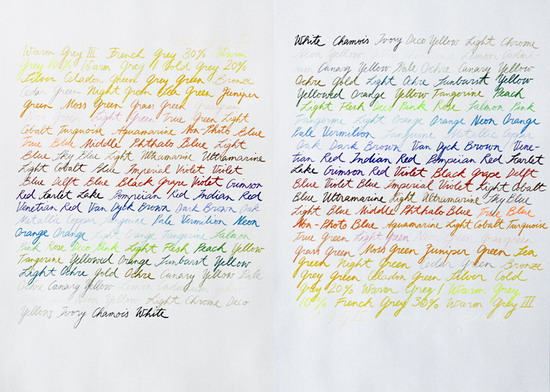 Warm Grey III French Grey 30% Warm
Grey Warm Grey I Cold Grey 20%
Silver Celadon Green Grey Green Bronze
Green Night Green Green Juniper
Green Moss Green Grass Green
Light Green True Green Light
Cobalt Turquoise Aquamarine Non-Photo Blue
True Blue Middle Phthalo Blue Light
Blue Sky Blue Light Ultramarine Ultramarine
Light Cobalt Blue Imperial Violet Violet
Blue Delft Blue Black Grape Violet Crimson
Red Scarlet Lake Pompeian Red Indian Red
Venetian Red Van Dyck Brown Dark Brown Oak
Pale Vermilion Neon
Orange Orange Salmon
Pink Rose Deco Pink Light Flesh Peach Yellow
Tangerine Yellowed Orange Sunburst Yellow
Light Ochre Gold Ochre Canary Yellow Pale
Ochre Canary Yellow
Light Chrome Deco
Yellow Ivory Chamois White
White Chamois Ivory Deco Yellow Light Chrome
Canary Yellow Pale Ochre Canary Yellow
Ochre Gold Light Ochre Sunburst Yellow
Yellowed Orange Yellow Tangerine Peach
Light Flesh Deco Pink Rose Salmon Pink
Tangerine Light Orange Orange Neon Orange
Pale Vermilion
Oak Dark Brown Van Dyck Brown Vene-
tian Red Indian Red Pompeian Red Scarlet
Lake Crimson Red Violet Black Grape Delft
Blue Violet Blue Imperial Violet Light Cobalt
Blue Ultramarine Light Ultramarine Sky Blue
Light Blue Middle Phthalo Blue True Blue
Non-Photo Blue Aquamarine Light Cobalt Turquoise
True Green Light Green
Grass Green Moss Green Juniper Green Sea
Green Night Green Green Bronze
Grey Green Celadon Green Silver Cold
Grey 20% Warm Grey I Warm Grey
10% French Grey 30% Warm Grey III